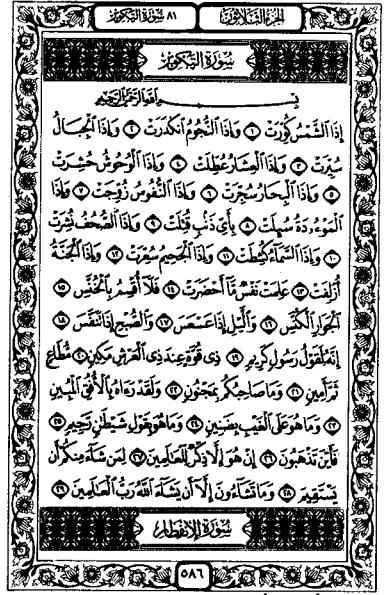 الجزء الثلاثون ٨١ سورة التكوير
سُورَةُ التَّكْوِيرِ
بِسْمِ اللَّهِ الرَّحْمَٰنِ الرَّحِيمِ
إِذَا ٱلشَّمْسُ كُوِّرَتْ ١ وَإِذَا ٱلنُّجُومُ ٱنكَدَرَتْ ٢ وَإِذَا ٱلْجِبَالُ
سُيِّرَتْ ٣ وَإِذَا ٱلْعِشَارُ عُطِّلَتْ ٤ وَإِذَا ٱلْوُحُوشُ حُشِرَتْ
٥ وَإِذَا ٱلْبِحَارُ سُجِّرَتْ ٦ وَإِذَا ٱلنُّفُوسُ زُوِّجَتْ ٧ وَإِذَا
ٱلْمَوْءُۥدَةُ سُئِلَتْ ٨ بِأَىِّ ذَنۢبٍ قُتِلَتْ ٩ وَإِذَا ٱلصُّحُفُ نُشِرَتْ
١٠ وَإِذَا ٱلسَّمَآءُ كُشِطَتْ ١١ وَإِذَا ٱلْجَحِيمُ سُعِّرَتْ ١٢ وَإِذَا ٱلْجَنَّةُ
أُزْلِفَتْ ١٣ عَلِمَتْ نَفْسٌ مَّآ أَحْضَرَتْ ١٤ فَلَآ أُقْسِمُ بِٱلْخُنَّسِ ١٥
ٱلْجَوَارِ ٱلْكُنَّسِ ١٦ وَٱلَّيْلِ إِذَا عَسْعَسَ ١٧ وَٱلصُّبْحِ إِذَا تَنَفَّسَ ١٨
إِنَّهُۥ لَقَوْلُ رَسُولٍ كَرِيمٍ ١٩ ذِى قُوَّةٍ عِندَ ذِى ٱلْعَرْشِ مَكِينٍ ٢٠ مُّطَاعٍ
ثَمَّ أَمِينٍ ٢١ وَمَا صَاحِبُكُم بِمَجْنُونٍ ٢٢ وَلَقَدْ رَءَاهُ بِٱلْأُفُقِ ٱلْمُبِينِ
٢٣ وَمَا هُوَ عَلَى ٱلْغَيْبِ بِضَنِينٍ ٢٤ وَمَا هُوَ بِقَوْلِ شَيْطَٰنٍ رَّجِيمٍ ٢٥
فَأَيْنَ تَذْهَبُونَ ٢٦ إِنْ هُوَ إِلَّا ذِكْرٌ لِّلْعَٰلَمِينَ ٢٧ لِمَن شَآءَ مِنكُمْ أَن
يَسْتَقِيمَ ٢٨ وَمَا تَشَآءُونَ إِلَّآ أَن يَشَآءَ ٱللَّهُ رَبُّ ٱلْعَٰلَمِينَ ٢٩
سُورَةُ الانفِطَارِ
٥٨٦